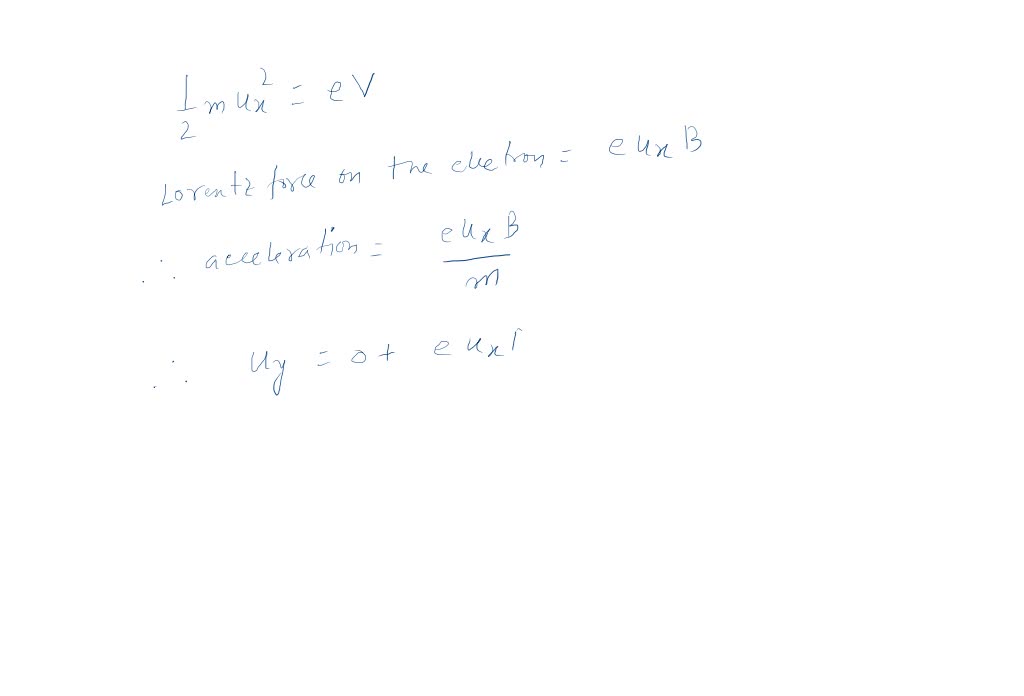 1/2 m u_x^2 = eV
Lorentz force on the electron = e u_x B
∴ acceleration = e u_x B / m
∴ u_y = 0 + e u_x